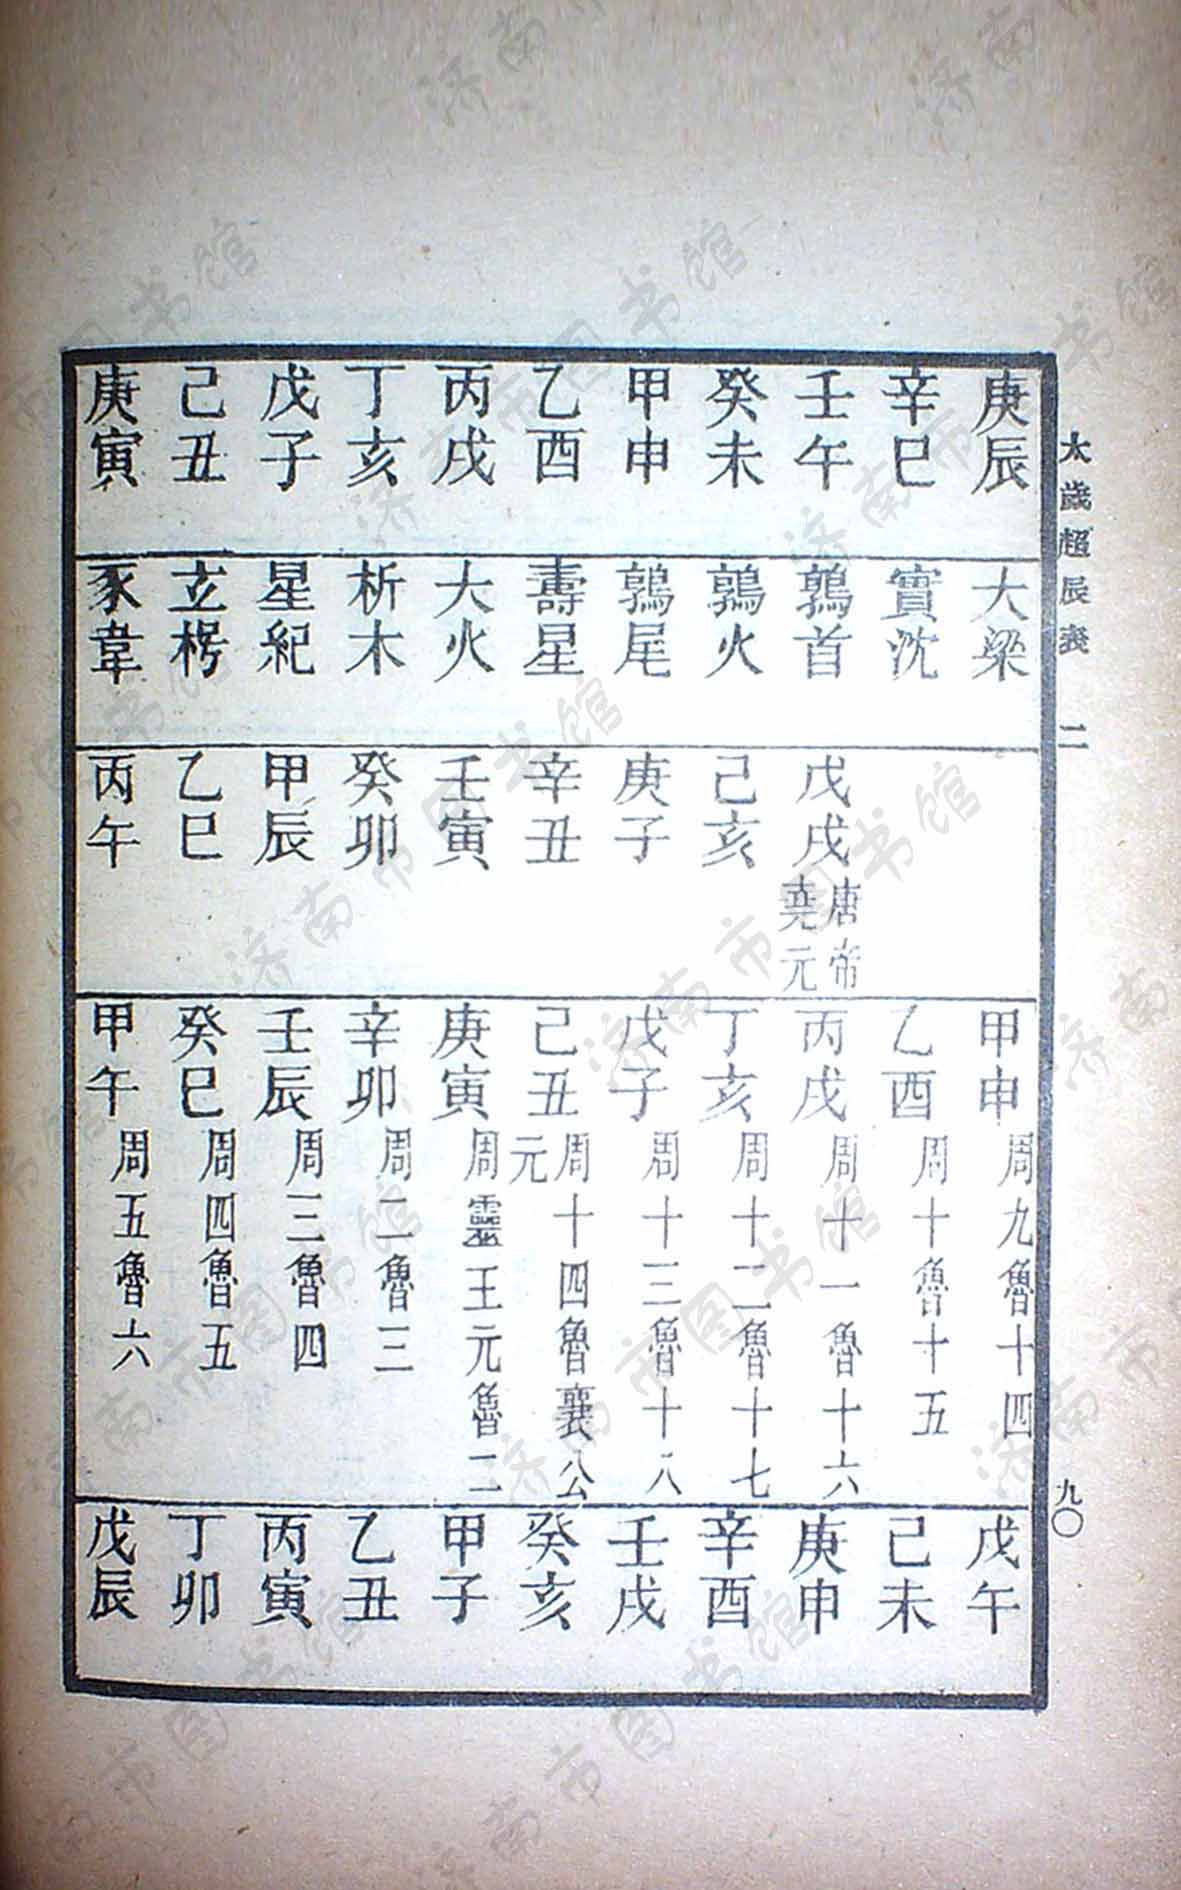 太歲超辰表 二 九〇
庚辰 大梁 甲申 周九魯十四 戊午
辛巳 實沈 乙酉 周十魯十五 己未
壬午 鶉首 戊戌 唐帝堯元 丙戌 周十一魯十六 庚申
癸未 鶉火 己亥 丁亥 周十二魯十七 辛酉
甲申 鶉尾 庚子 戊子 周十三魯十八 壬戌
乙酉 壽星 辛丑 己丑 周十四魯襄公元 癸亥
丙戌 大火 壬寅 庚寅 周靈王元魯二 甲子
丁亥 析木 癸卯 辛卯 周二魯三 乙丑
戊子 星紀 甲辰 壬辰 周三魯四 丙寅
己丑 玄枵 乙巳 癸巳 周四魯五 丁卯
庚寅 豕韋 丙午 甲午 周五魯六 戊辰
济南市图书馆